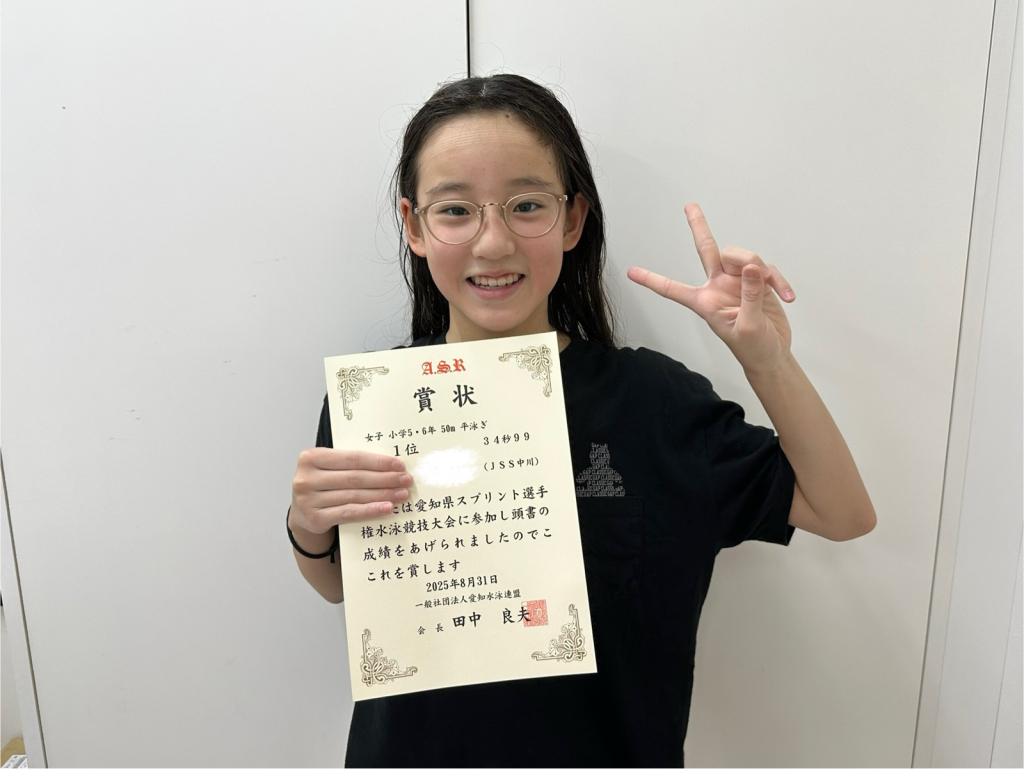 A.S.R
賞状
女子 小学5・6年 50m 平泳ぎ
1位 34秒99
(JSS中川)
は愛知県スプリント選手
権水泳競技大会に参加し頭書の
成績をあげられましたのでこ
これを賞します
2025年8月31日
一般社団法人愛知水泳連盟
会長 田中 良夫